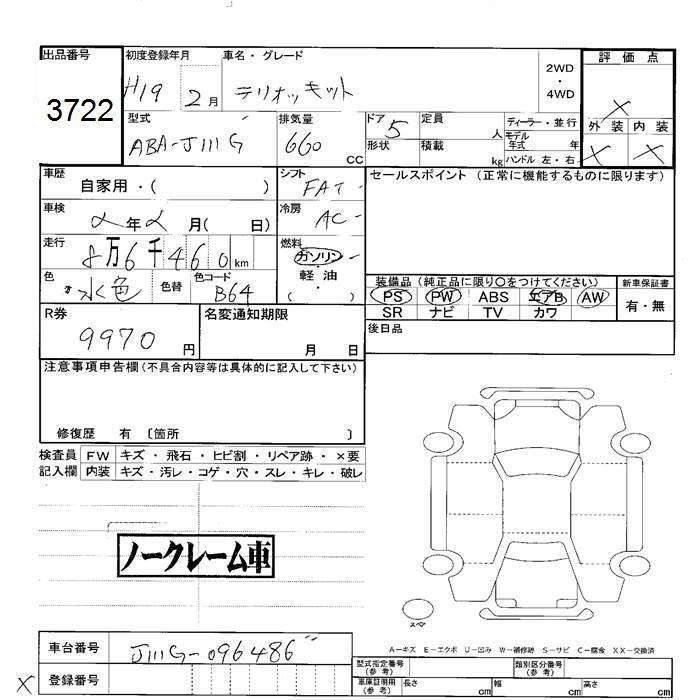 出品番号 初度登録年月 車名・グレード 2WD・4WD 評価点
3722 H19 2月 テリオスキット X
型式 排気量 ドア 定員 人 ディーラー・並行 外装 内装
ABA-J111G 660 CC 5 形状 積載 kg モデル年式 年 X X
ハンドル 左・右
車歴 自家用・( ) シフト FAT セールスポイント (正常に機能するものに限ります)
車検 年 月( 日) 冷房 AC
走行 8万6千460km 燃料 ガソリン・軽油・( )
色 水色 色替 色コード B64
装備品 (純正品に限り○をつけてください) 新車保証書
PS PW ABS エアB AW 有・無
SR ナビ TV カワ
R券 9970円 名変通知期限 月 日 後日品
注意事項申告欄(不具合内容等は具体的に記入して下さい)
修復歴 有 〔箇所 〕
検査員 FW キズ・飛石・ヒビ割・リペア跡・×要
記入欄 内装 キズ・汚レ・コゲ・穴・スレ・キレ・破レ
ノークレーム車
スペア
A-キズ E-エクボ U-凹み W-補修跡 S-サビ C-腐食 XX-交換済
車台番号 J111G-096486
X 登録番号
型式指定番号(参考) 類別区分番号(参考)
車庫証明用(参考) 長さ cm 幅 cm 高さ cm